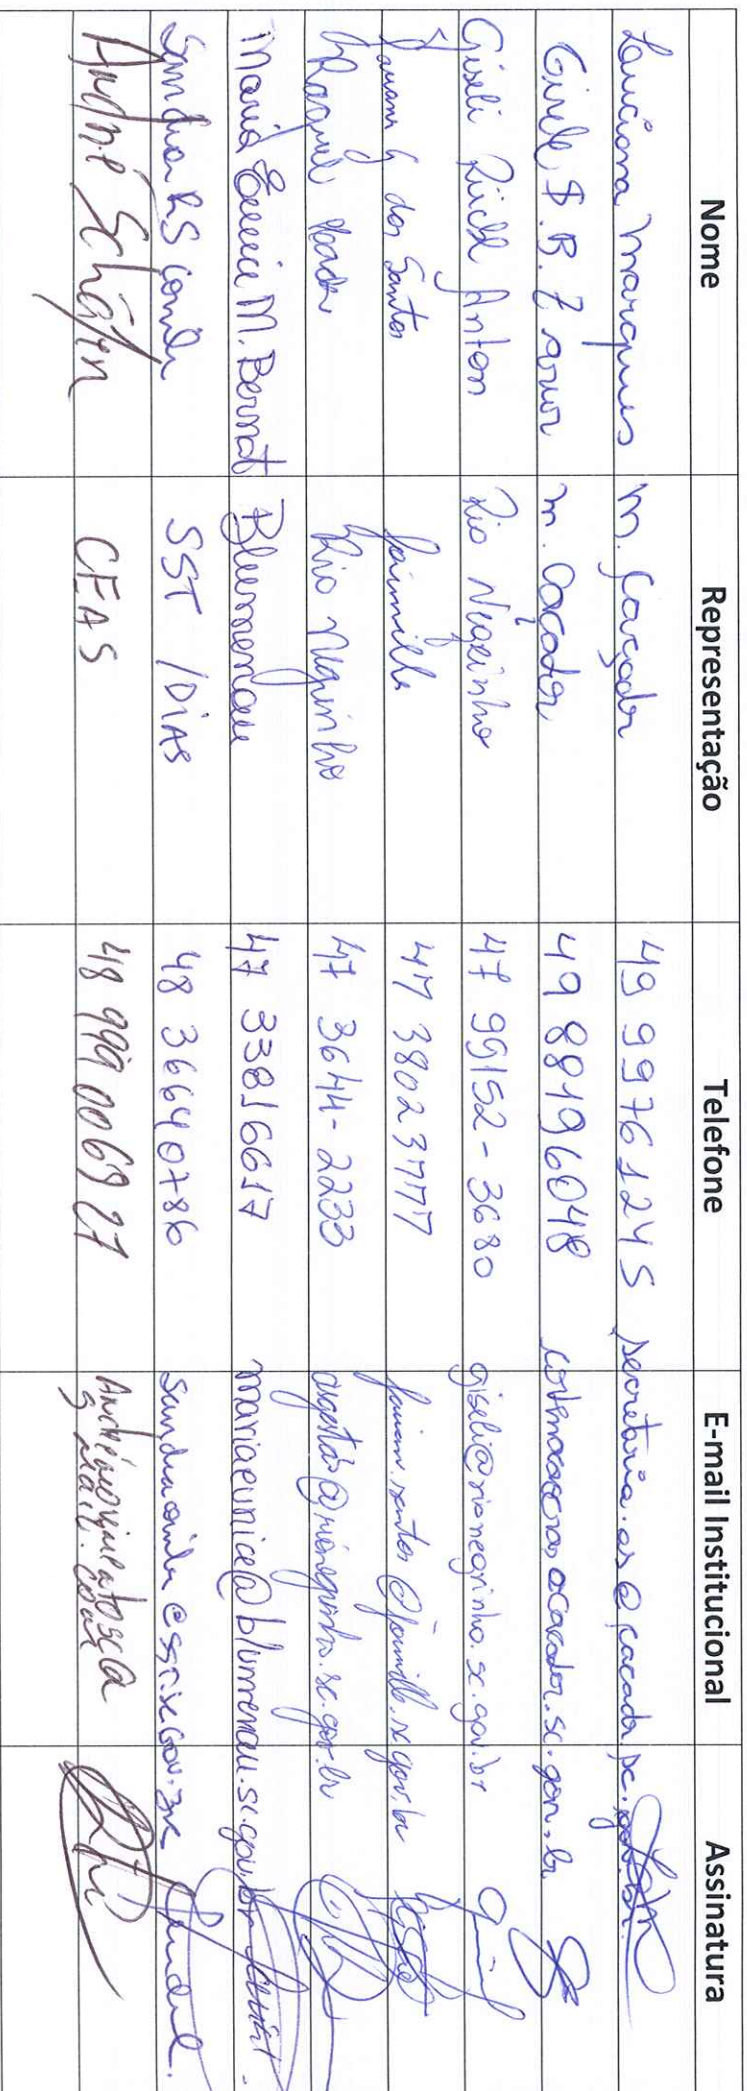 Nome Representação Telefone E-mail Institucional Assinatura
Luciana Marques M. Caçador 49 999761245 secretaria.as@cacador.sc.gov.br
Gisele M. Caçador 49 88196048 cacador.sc.gov.br
Giseli Rückl Anton Rio Negrinho 47 99152-3680 giseli@rionegrinho.sc.gov.br
dos Santos Joinville 47 38023777 santos@joinville.sc.gov.br
Raquel Rio Negrinho 47 3644-2233 @rionegrinho.sc.gov.br
Maria Eunice M. Bernat Blumenau 47 33816617 mariaeunice@blumenau.sc.gov.br
Sandra RS SST / DIAS 48 36640786
André Schäfer CEAS 48 999006927